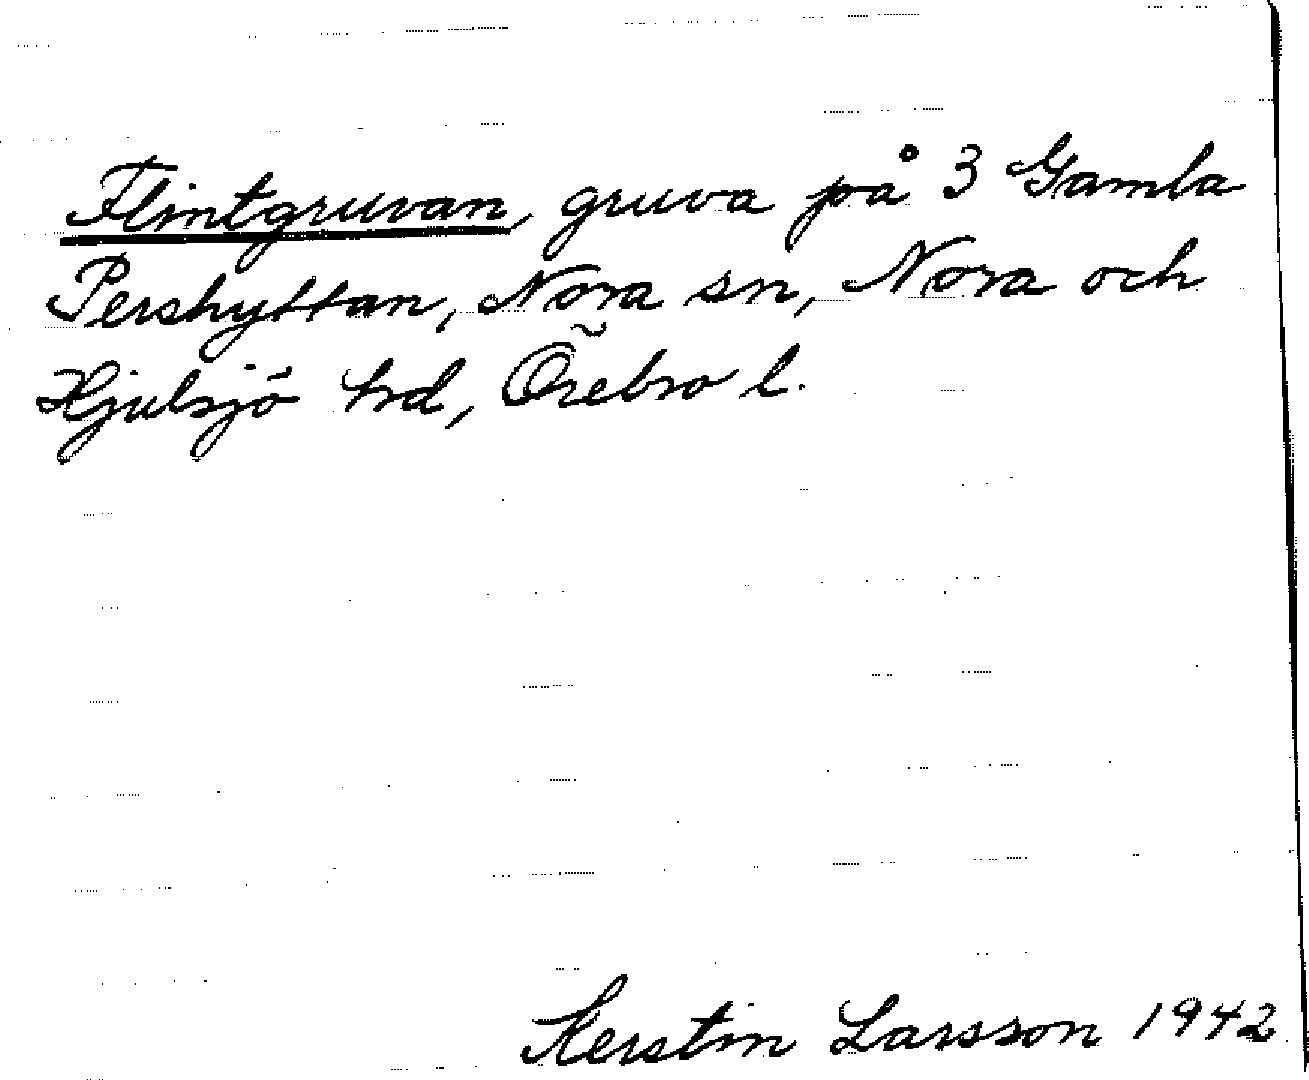 Flintgruvan, gruva på 3 Gamla
Pershyttan, Nora sn, Nora och
Hjulsjö hrd, Örebro l.
Kerstin Larsson 1942